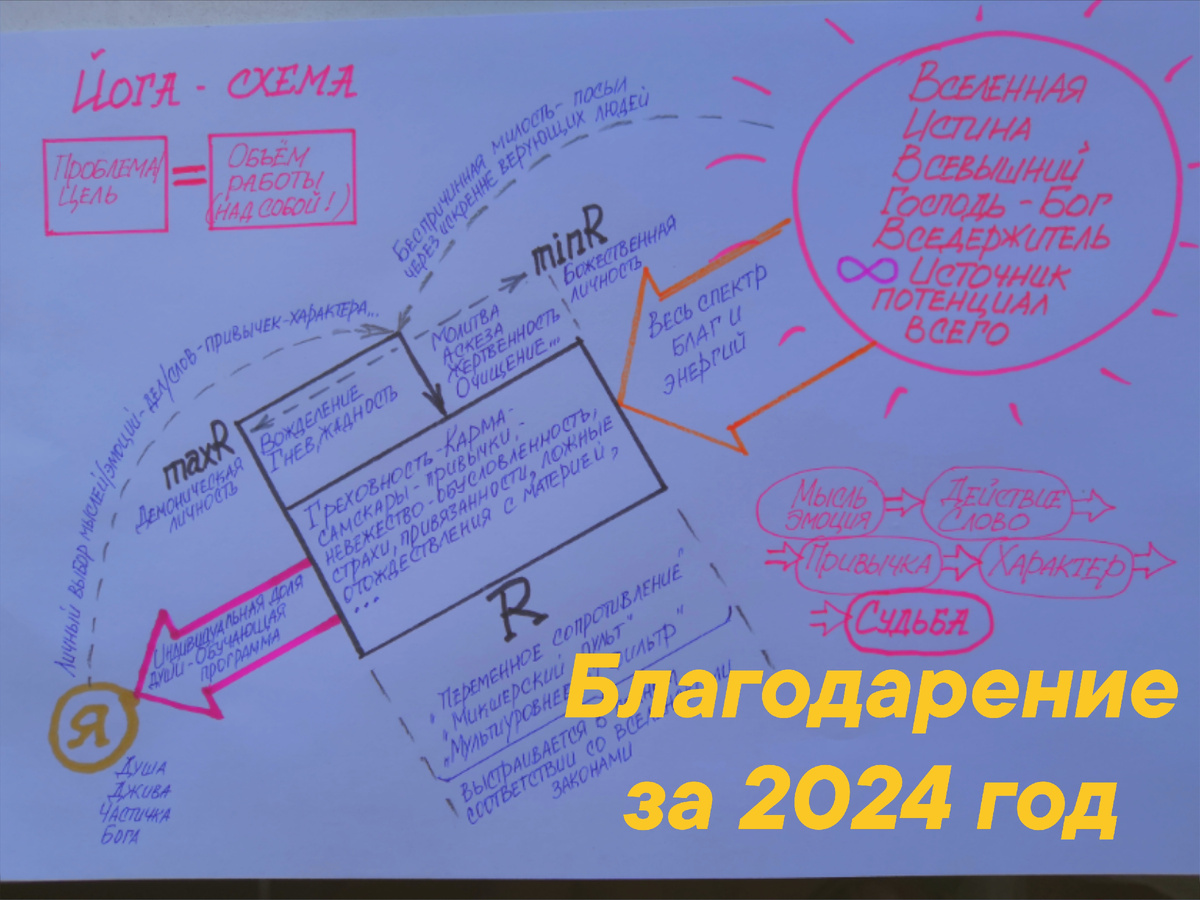 Йога - схема
Проблема/
цель
=
Объём
работы
(над собой!)
Беспричинная милость - посыл
через "искренне верующих людей
Вселенная
Истина
Всевышний
Господь - Бог
Вседержитель
∞ Источник
потенциал
всего
minR
Божественная
личность
Весь спектр
благ и
энергий
Молитва
Аскеза
Жертвенность
Очищение...
Личный выбор мыслей/эмоций-дел/слов-привычек-характера...
maxR
Демоническая
личность
Вожделение
Гнев/жадность
Греховность-карма-
самскары-привычки-
невежество-обусловленность,
страхи, привязанности, ложные
отождествления с материей,
...
R
"Переменное сопротивление"
"Микшерский пульт"
"Мультиуровневый фильтр"
выстраивается в
соответствии со
законами
Индивидуальная доля
души-обучающая
программа
Я
Душа
Джива
Частичка
Бога
Мысль
эмоция
Действие
Слово
Привычка
Характер
Судьба
Благодарение
за 2024 год